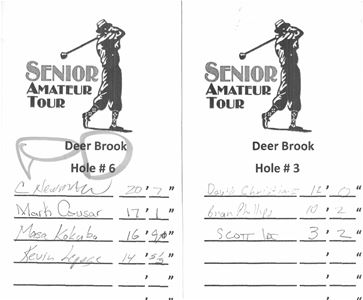 SENIOR
AMATEUR
TOUR
Deer Brook
Hole # 6
C Newman 20 ' 7 "
Mark Cousar 17 ' 1 "
Masa Kokubo 16 ' 9 "
Kevin 14 ' "
' "
' "
SENIOR
AMATEUR
TOUR
Deer Brook
Hole # 3
David Christians 12 ' 0 "
Brian Phillips 10 ' 2 "
SCOTT 3 ' 2 "
' "
' "
' "